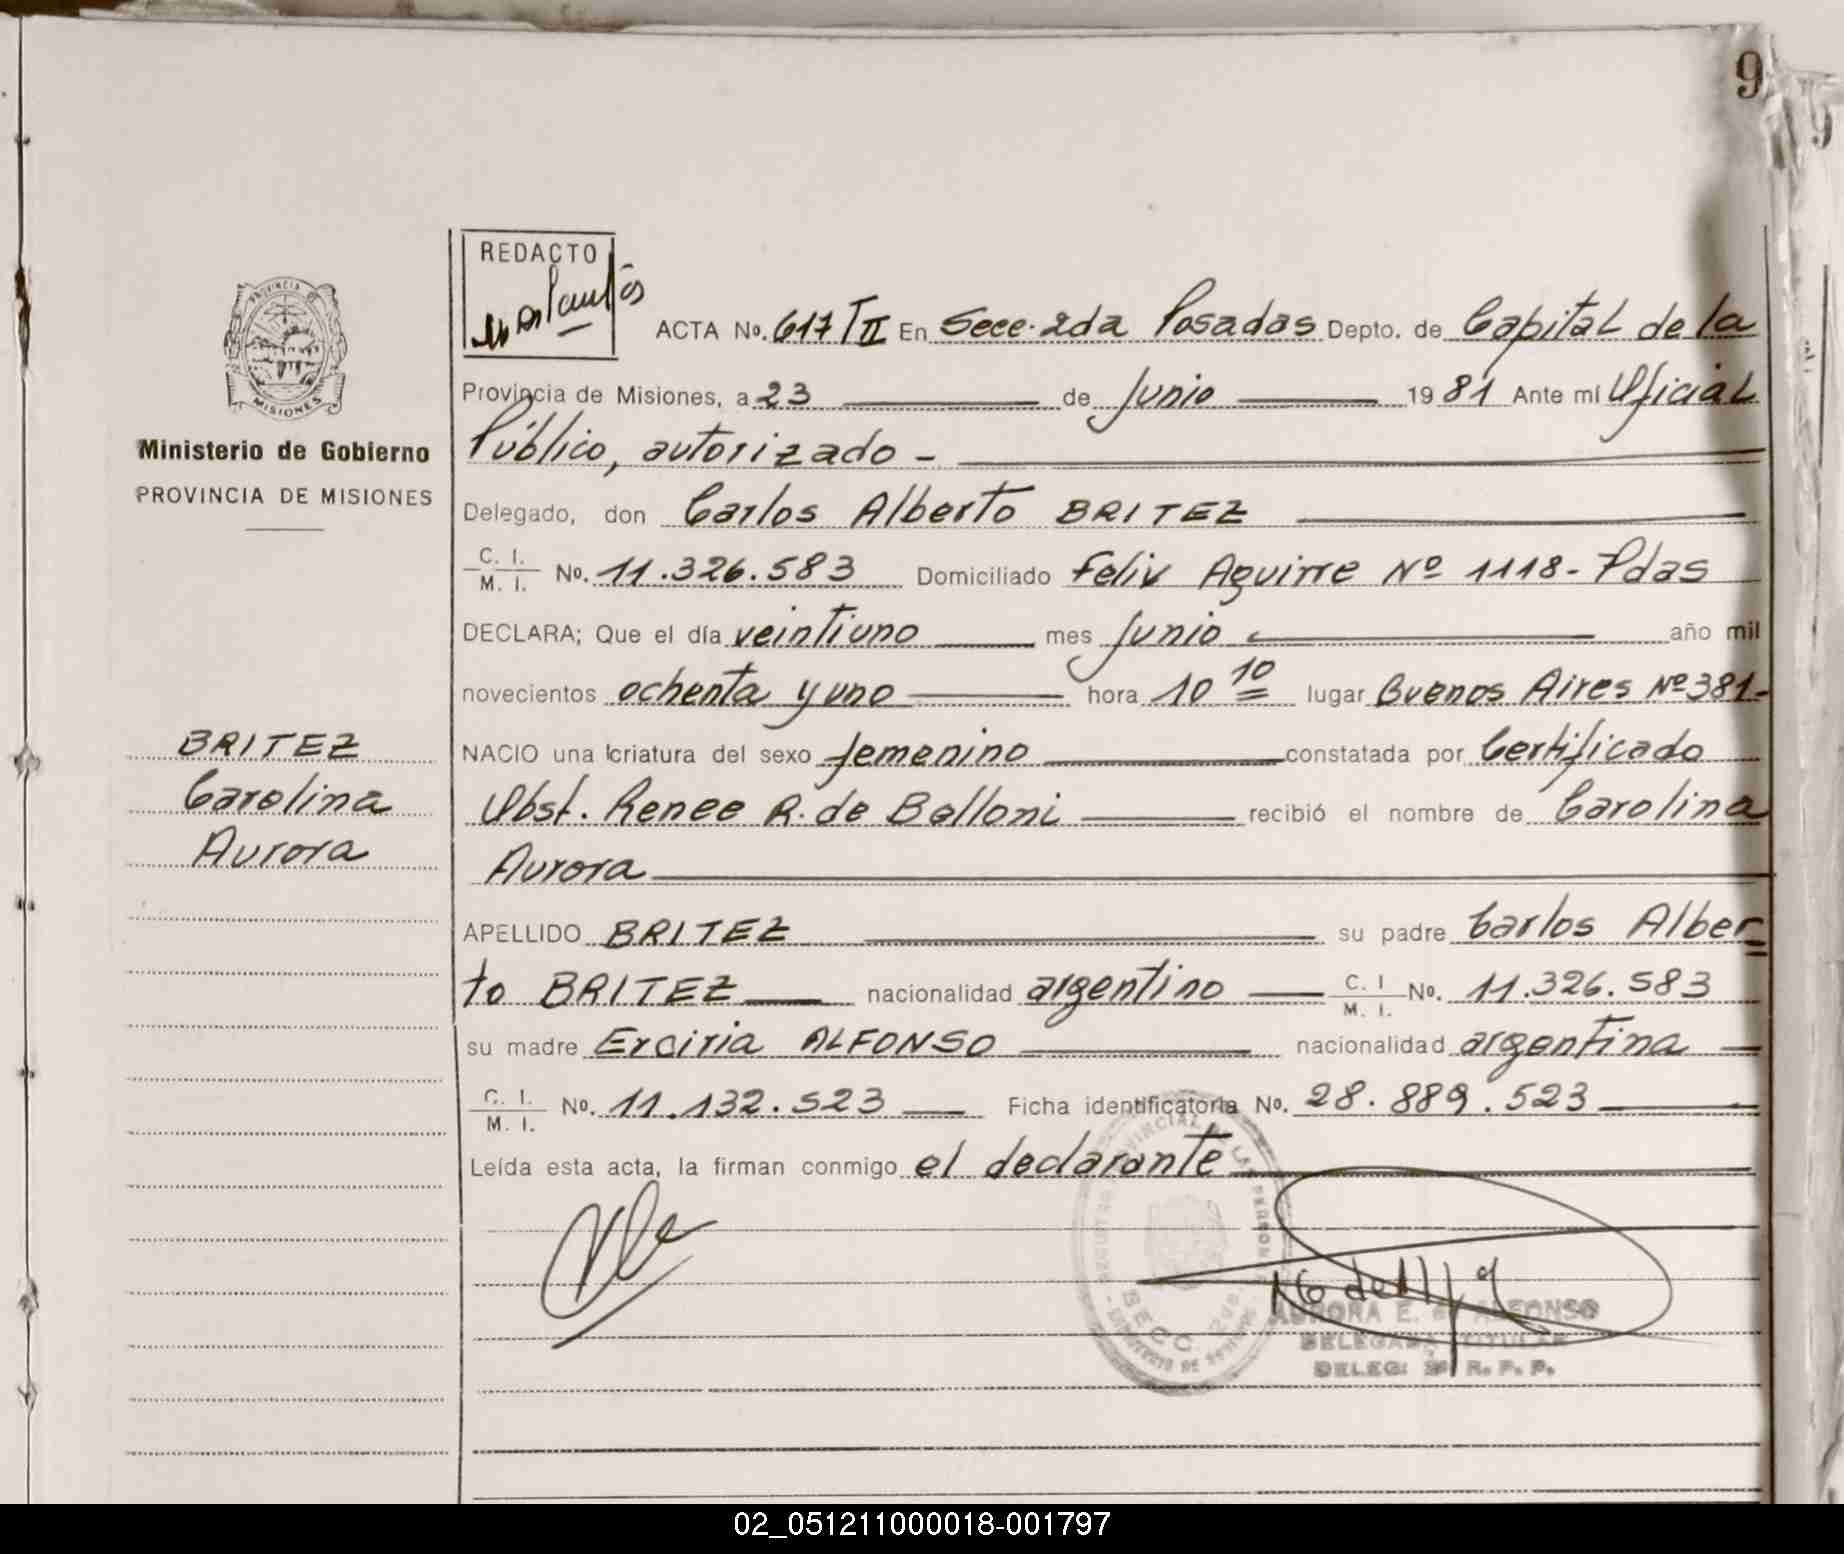 9
9
REDACTO
PROVINCIA DE
MISIONES
Ministerio de Gobierno
PROVINCIA DE MISIONES
BRITEZ
Carolina
Aurora
ACTA No. 617 T II En Secc. 2da Posadas Depto. de Capital de la
Provincia de Misiones, a 23 de Junio 1981 Ante mi Oficial
Público, autorizado -
Delegado, don Carlos Alberto BRITEZ
C. I. / M. I. No. 11.326.583 Domiciliado Felix Aguirre Nº 1118 - Pdas
DECLARA; Que el día veintiuno mes Junio año mil
novecientos ochenta y uno hora 10 10 lugar Buenos Aires Nº 381-
NACIO una criatura del sexo femenino constatada por Certificado
Obst. Renee R. de Belloni recibió el nombre de Carolina
Aurora
APELLIDO BRITEZ su padre Carlos Alber=
to BRITEZ nacionalidad argentino C. I / M. I. No. 11.326.583
su madre Erciria ALFONSO nacionalidad argentina
C. I. / M. I. No. 11.132.523 Ficha identificatoria No. 28.889.523
Leída esta acta, la firman conmigo el declarante
AURORA E. de ALFONSO
DELEGADA TITULAR
DELEG. R. P. P.
SECC.
02_051211000018-001797